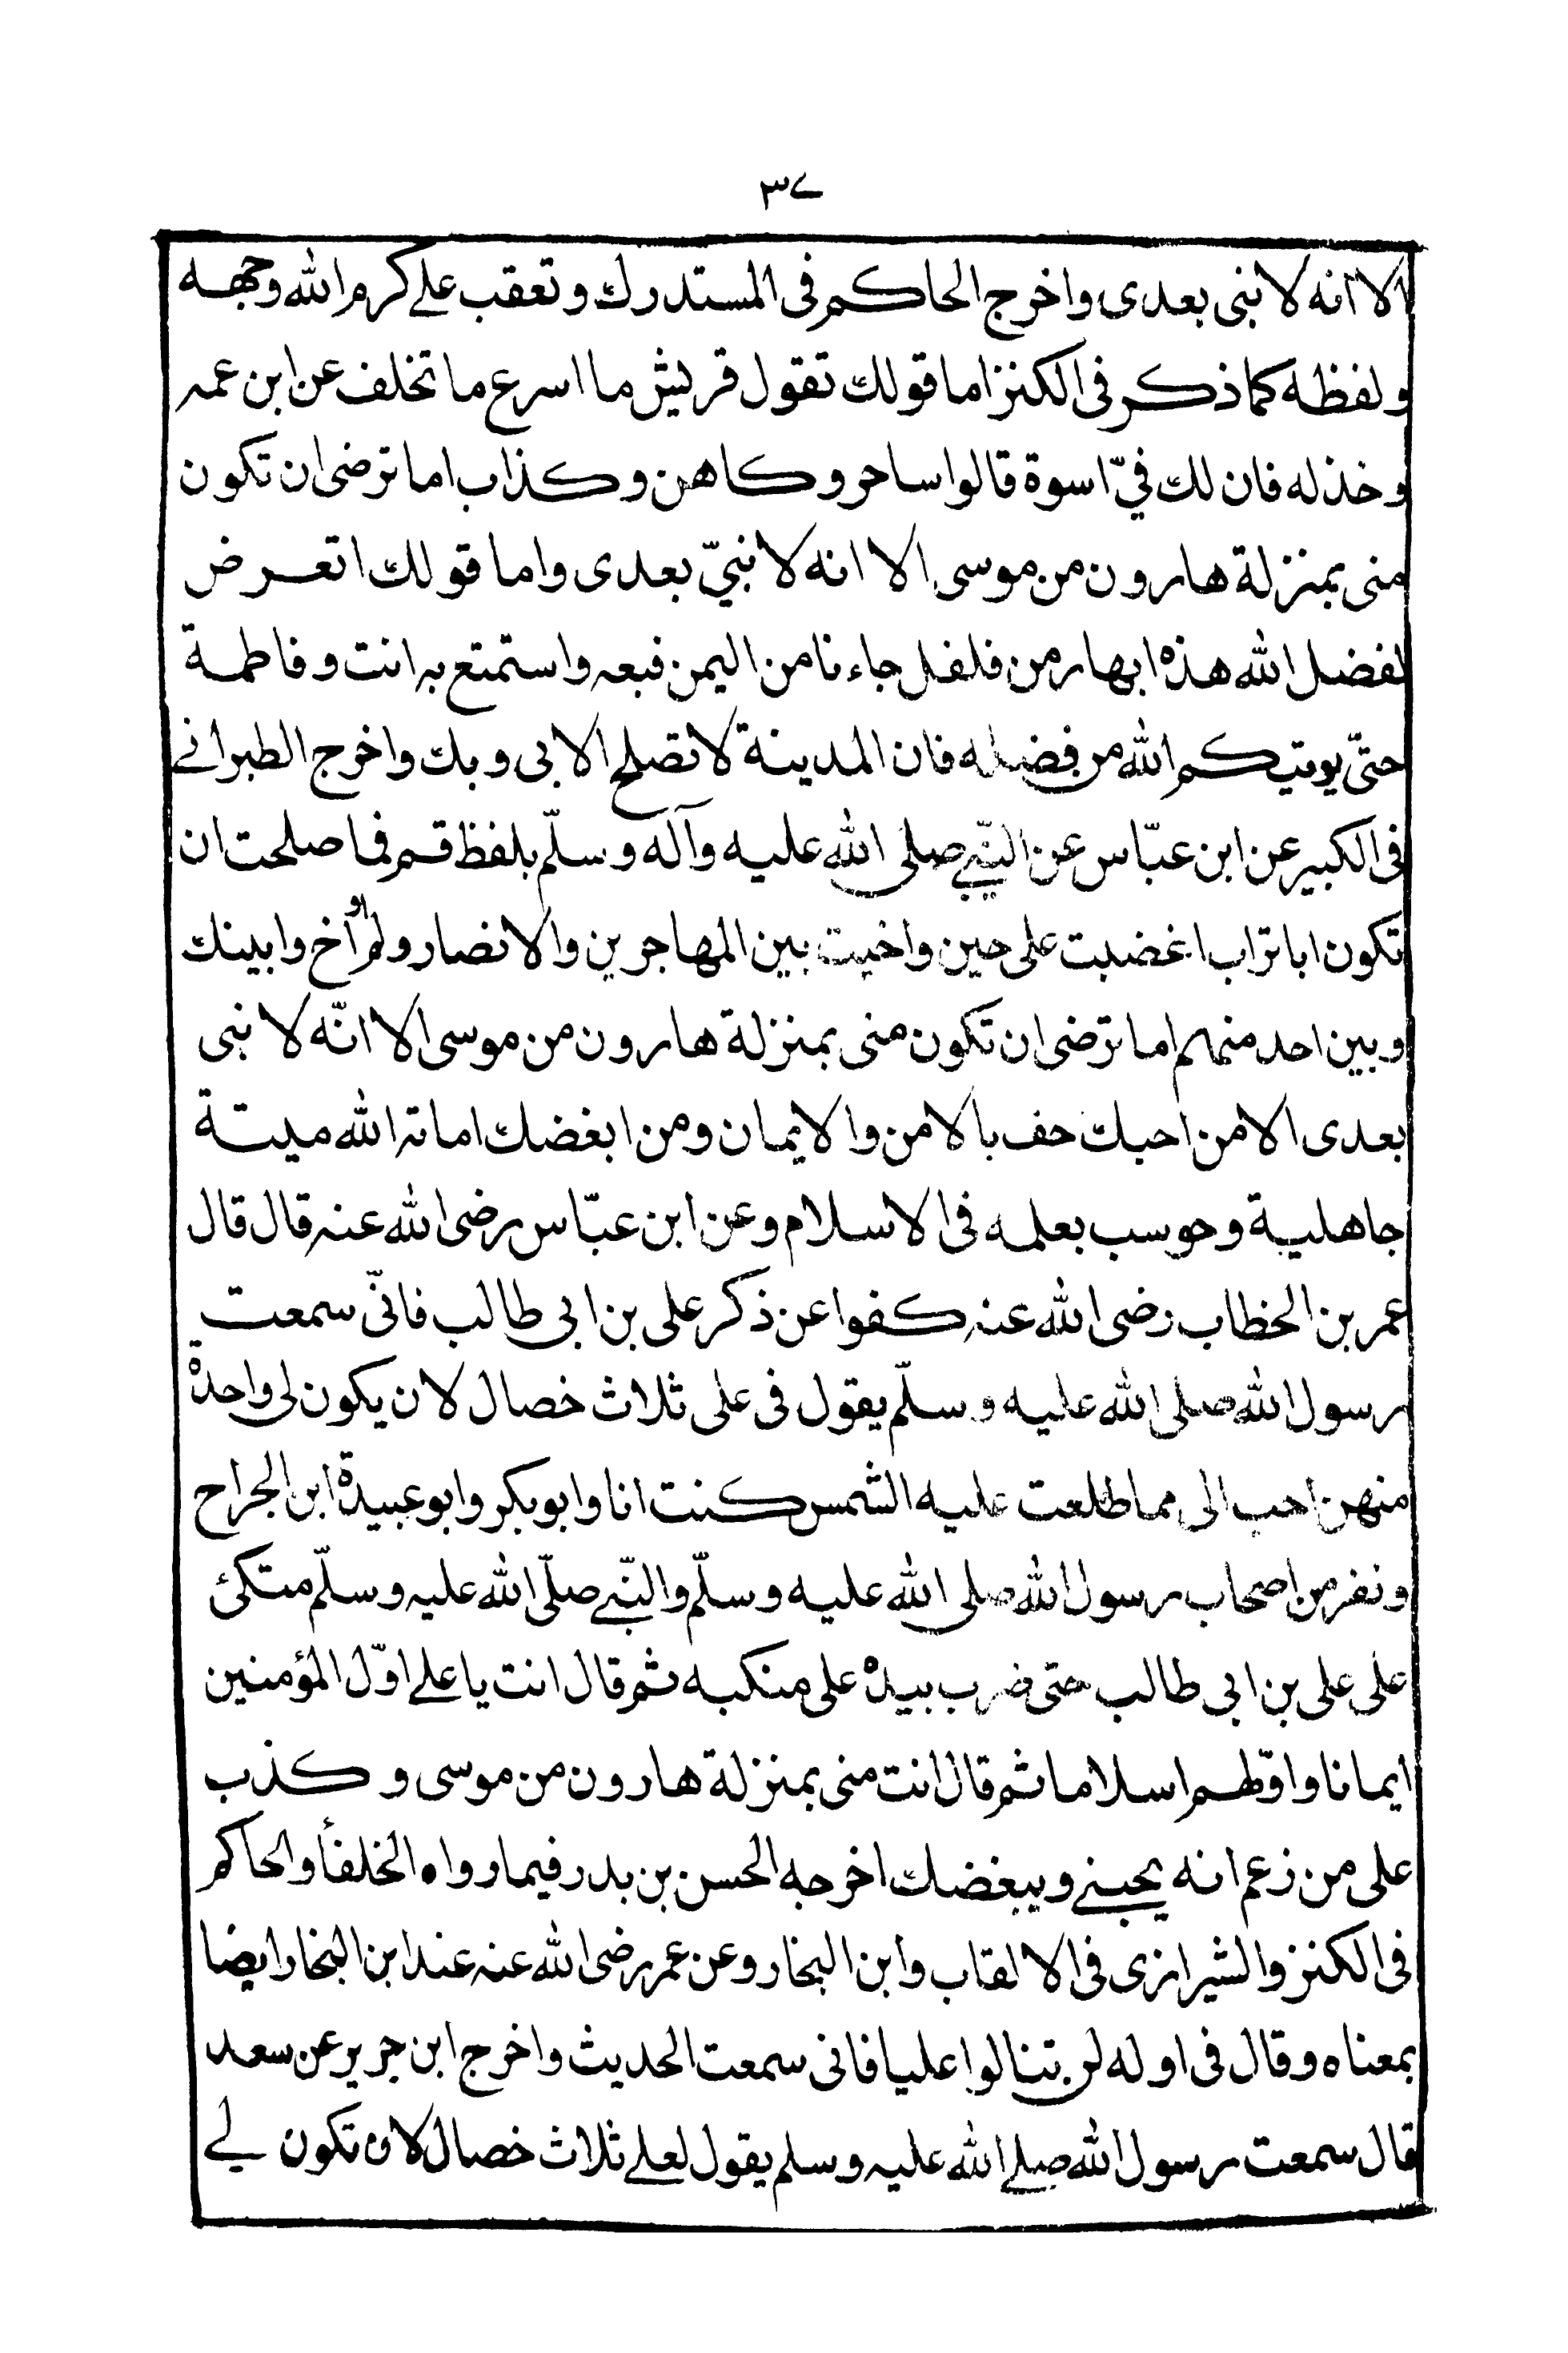 ٣٧
الا انه لا نبی بعدی واخرج الحاکم فی المستدرك وتعقب علے کرم الله وجهه
ولفظه کما ذکر فی الکنز اما قولك تقول قریش ما اسرع ما تخلف عن ابن عمه
وخذله فان لك فیّ اسوة قالوا ساحر وکاهن وکذاب اما ترضی ان تکون
منی بمنزلة هارون من موسی الا انه لا نبیّ بعدی واما قولك اتعرض
لفضل الله هذه ابهار من فلفل جاءنا من الیمن فبعه واستمتع به انت وفاطمة
حتّی یوتیکم الله من فضله فان المدینة لا تصلح الا بی وبك واخرج الطبرانے
فی الکبیر عن ابن عبّاس عن النّبے صلی الله علیه وآله وسلّم بلفظ قم فما صلحت ان
تکون ابا تراب اغضبت علی حین واخیت بین المهاجرین والانصار ولم أواخ وابینك
وبین احد منهم اما ترضی ان تکون منی بمنزلة هارون من موسی الا انّه لا نبی
بعدی الا من احبك حف بالامن والایمان ومن ابغضك اماته الله میتة
جاهلیة وحوسب بعلمه فی الاسلام وعن ابن عبّاس رضی الله عنه قال قال
عمر بن الخطاب رضی الله عنه کفوا عن ذکر علی بن ابی طالب فانّی سمعت
رسول الله صلی الله علیه وسلّم یقول فی علی ثلاث خصال لان یکون لی واحدة
منهن احب الی مما طلعت علیه الشمس کنت انا وابوبکر وابوعبیدة ابن الجراح
ونفر من اصحاب رسول الله صلی الله علیه وسلّم والنّبے صلّی الله علیه وسلّم متکئ
علی علی بن ابی طالب حتی ضرب بیده علی منکبه ثم قال انت یا علے اوّل المؤمنین
ایمانا واوّلهم اسلاما ثم قال انت منی بمنزلة هارون من موسی وکذب
علی من زعم انه یحبنے ویبغضك اخرجه الحسن بن بدر فیما رواه الخلفأ والحاکم
فی الکنز والشیرازی فی الالقاب وابن النجار وعن عمر رضی الله عنه عند ابن النجار ایضا
بمعناه وقال فی اوله لن تنالوا علیا فانی سمعت الحدیث واخرج ابن جریر عن سعد
قال سمعت رسول الله صلے الله علیه وسلم یقول لعلے ثلاث خصال لان تکون لے